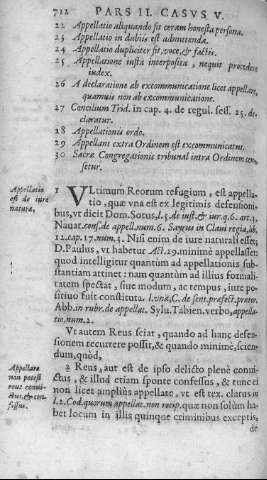 712 PARS II. CASUS V.
22 Appellatio aliquando fit ceram honesta persona.
23 Appellatio in dubiis est admittenda.
24 Appellatio dupliciter fit, voce, & factis.
25 Appellatione iusta interposita, nequit procedere
iudex.
26 A declaratione ab excommunicatione licet appellari,
quamuis non ab excommunicatione.
27 Concilium Trid. in cap. 4. de regul. sess. 25. de-
claratur.
28 Appellationis ordo.
29 Appellans extra Ordinem est excommunicatus.
30 Sacræ Congregationis tribunal intra Ordinem cen-
setur.
Appellatio
est de iure
natura,
1 VLtimum Reorum refugium, est appella-
tio, quæ vna est ex legitimis defensioni-
bus, vt dicit Dom. Sotus, l. 5. de iust. & iur. q. 6. art. 4.
Nauar. cons. de appell. num. 6. Sayrus in Claui regia, lib.
12. cap. 17. num. 1. Nisi enim de iure naturali esset;
D. Paulus, vt habetur Act. 29. minimè appellasset:
quod intelligitur quantùm ad appellationis sub-
stantiam attinet: nam quantùm ad illius formali-
tatem spectat, siue modum, ac tempus, iure po-
sitiuo fuit constituta. l. vna, C. de sent. præfect. prætor.
Abb. in rubr. de appellat. Sylu. Tabien. verbo, appella-
tio, num. 2.
Vt autem Reus sciat, quando ad hanc defen-
sionem recurrere possit, & quando minimè, scien-
dum, quòd,
Appellare
non potest
reus conui-
ctus, & con-
fessus.
2 Reus, aut est de ipso delicto plenè conui-
ctus, & illud etiam sponte confessus, & tunc ei
non licet ampliùs appellare, vt est tex. clarus in
l. 2. Cod. quorum appellat. non recip. quæ non solùm ha-
bet locum in illis quinque criminibus exceptis,
de